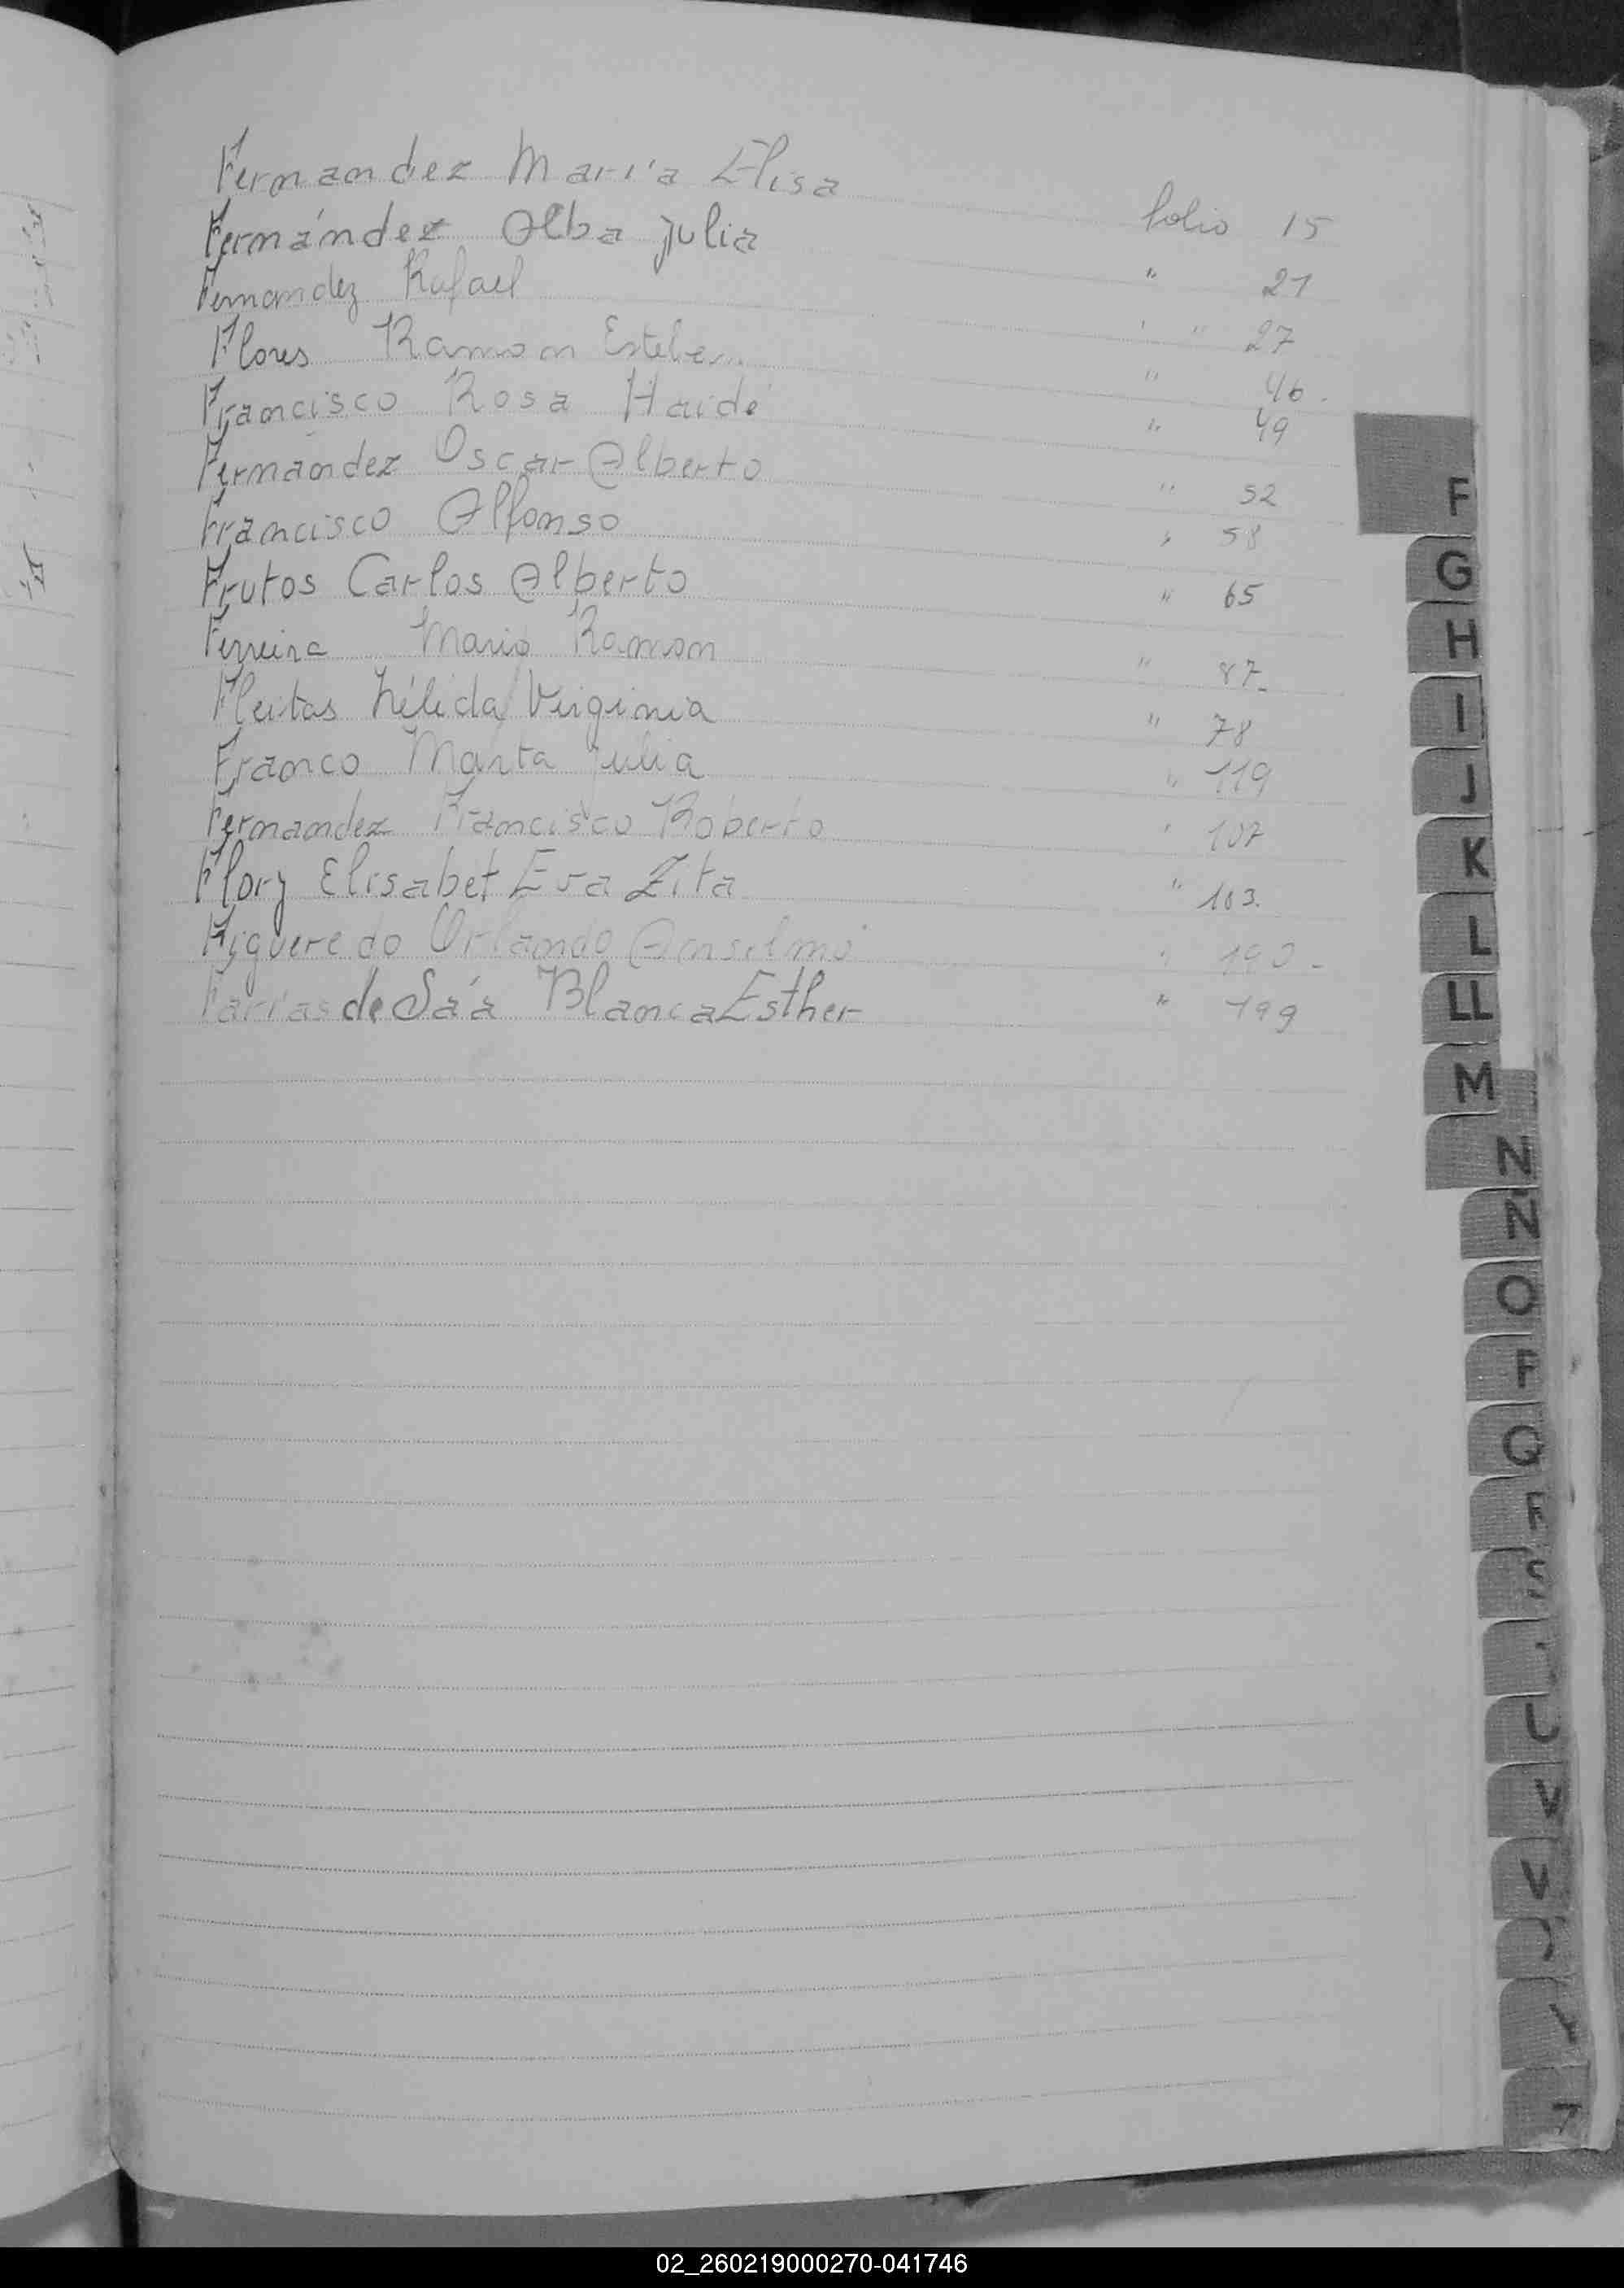 Fernandez María Elisa folio 15
Fernández Alba Julia " 21
Fernandez Rafael " " 27
Flores Ramon Esteban " 46.
Francisco Rosa Haidé " 49
Fernandez Oscar Alberto " 52
Francisco Alfonso " 58
Frutos Carlos Alberto " 65
Ferreira Mario Ramon " 87
Fleitas Nélida Virginia " 78
Franco Marta Julia " 119
Fernandez Francisco Roberto " 107
Flory Elisabet Eva Zita " 103.
Figueredo Orlando Anselmo " 190
Farías de Sáa Blanca Esther " 199
F
G
H
I
J
K
L
LL
M
N
Ñ
O
P
Q
R
S
U
V
02_260219000270-041746